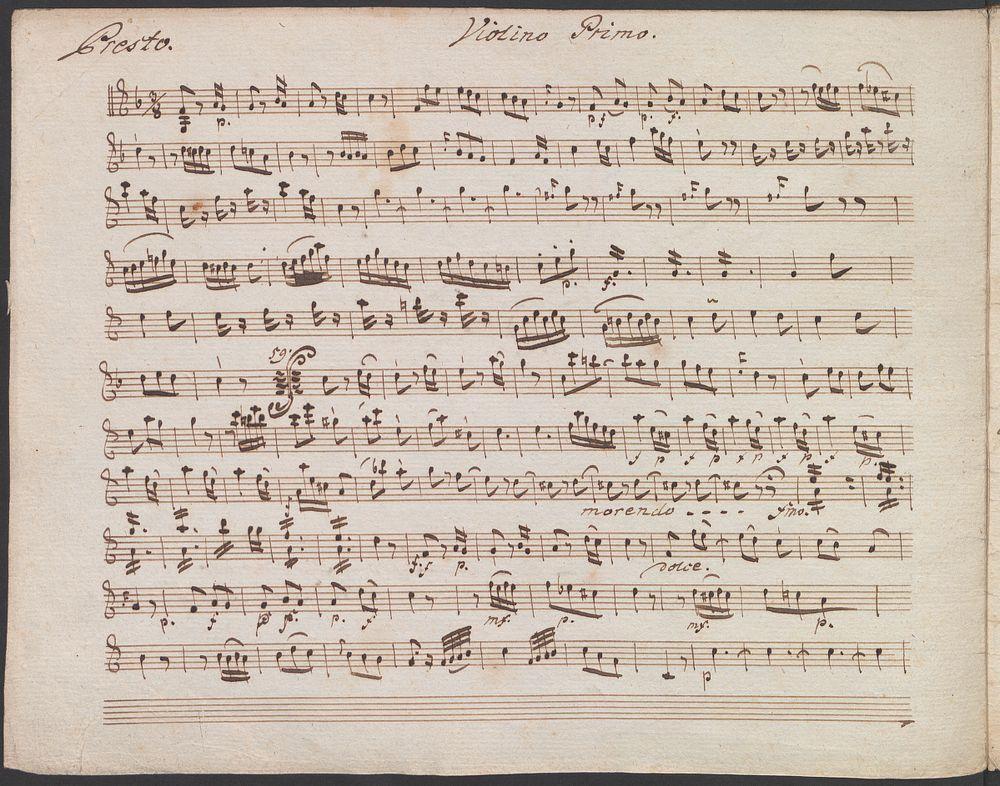 Presto.
Violino Primo.
3/8
p. p. f. p. f.
p. f.
59.
f p f p f p f p. f p.
f
morendo - - - - fmo.
f: f p. dolce.
p. f p f. p. f mf. p. mf. p.
p